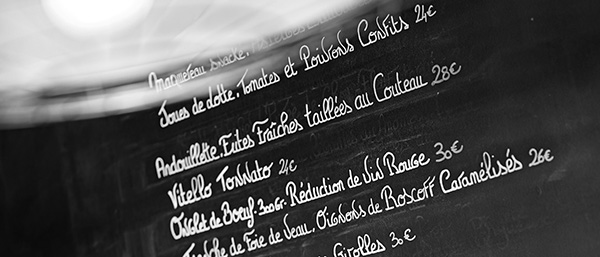 Maquereau
Joues de Lotte. Tomates et Poivrons Confits 24€
Andouillette. Frites Fraîches taillées au Couteau 28€
Vitello Tonnato 24€
Onglet de Boeuf. 300gr. Réduction de Vin Rouge 30€
Tranche de Foie de Veau. Oignons de Roscoff Caramélisés 26€
Girolles 30€